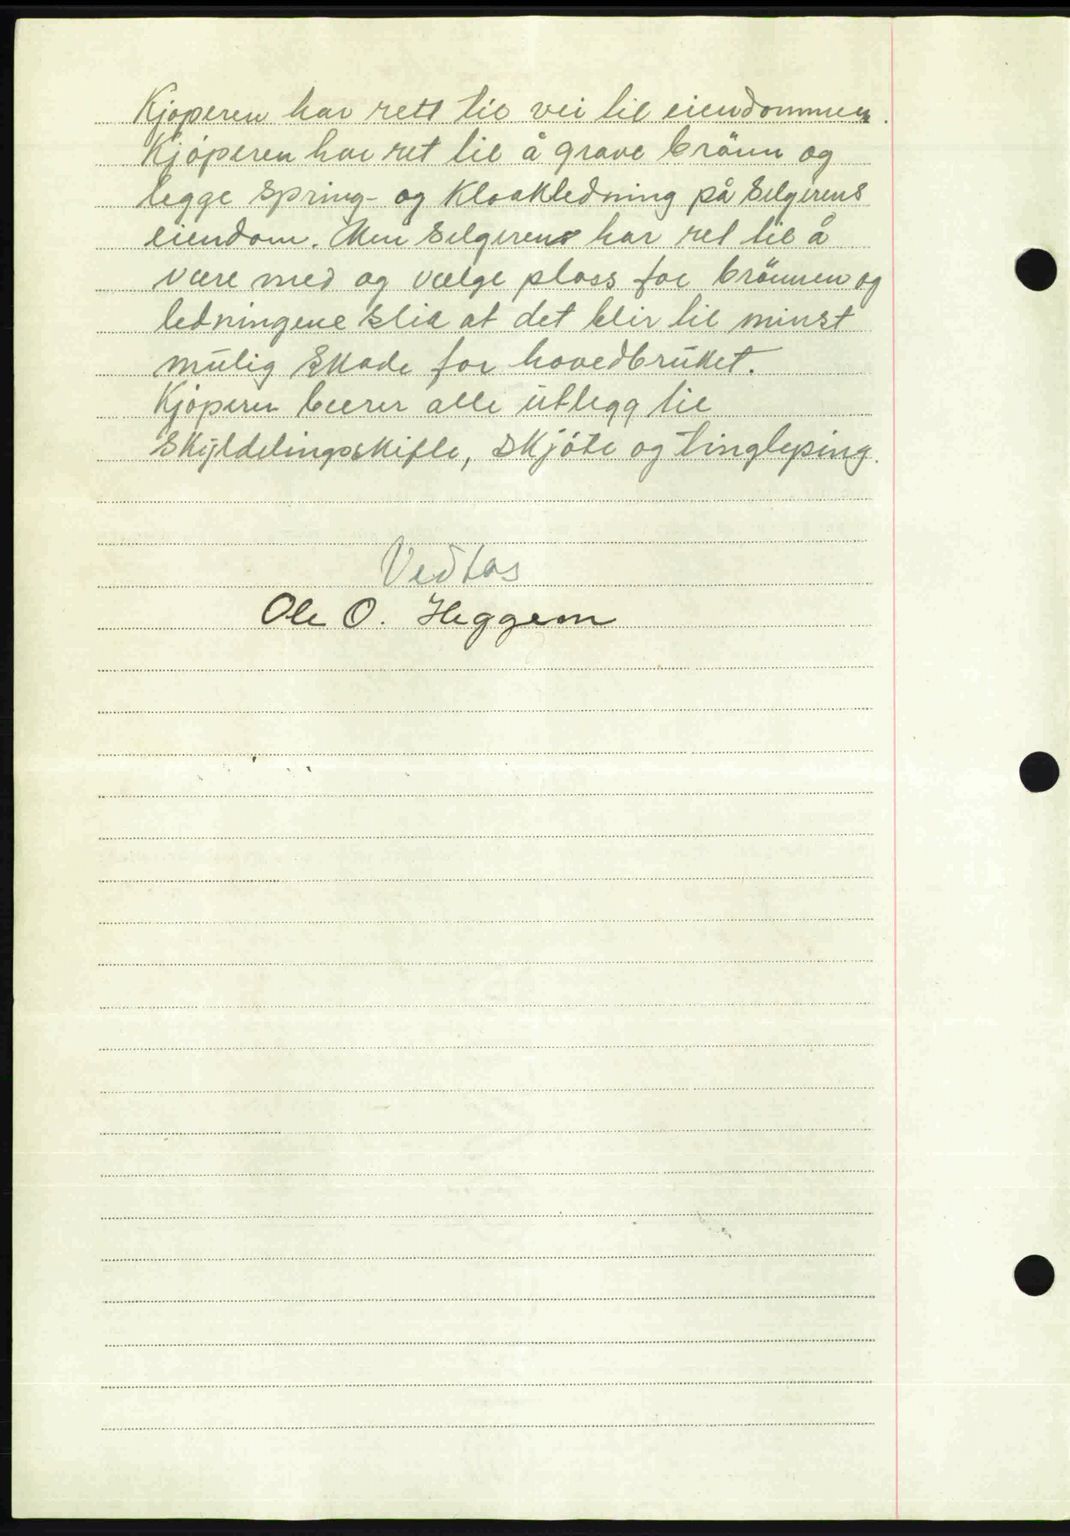 Kjøperen har rett til vei til eiendommen.
Kjøperen har ret til å grave brönn og
legge spring- og kloakkledning på selgerens
eiendom. Men selgerens har ret til å
være med og vælge plass for brönnen og
ledningene slik at det blir til minst
mulig skade for hovedbruket.
Kjøperen bærer alle utlegg til
skylddelingsskifte, skjöte og tinglysing.
Vedtas
Ole O. Heggem